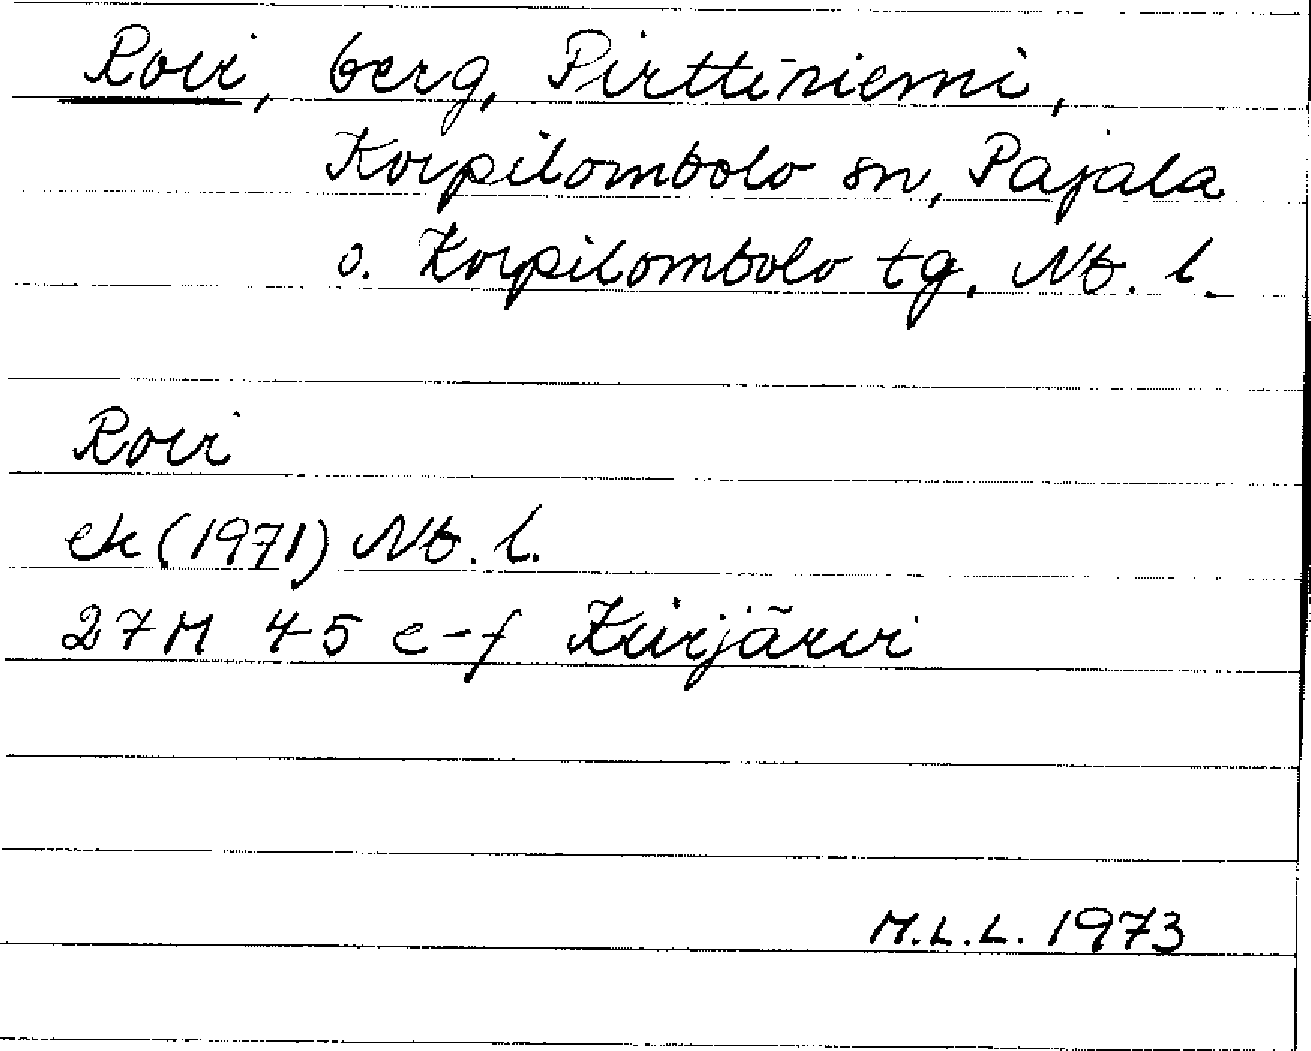 Rovi, berg, Pirttiniemi,
Korpilombolo sn, Pajala
o. Korpilombolo tg. Nb. l.
Rovi
ek (1971) Nb. l.
27M 4-5 e-f Kuijärvi
M.L.L. 1973